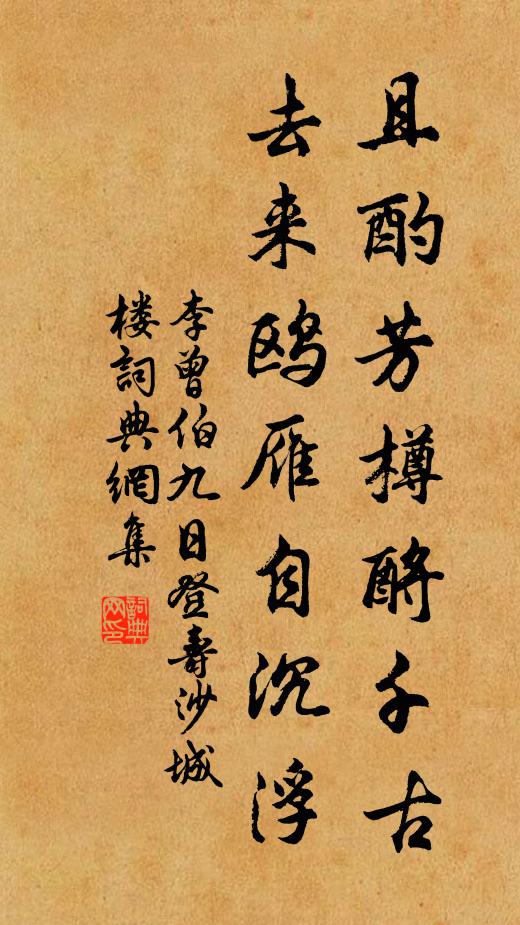 且酌芳樽酹千古
去来鸥雁自沉浮
李曾伯九日登壽沙城
楼詞典網集
詞典网印